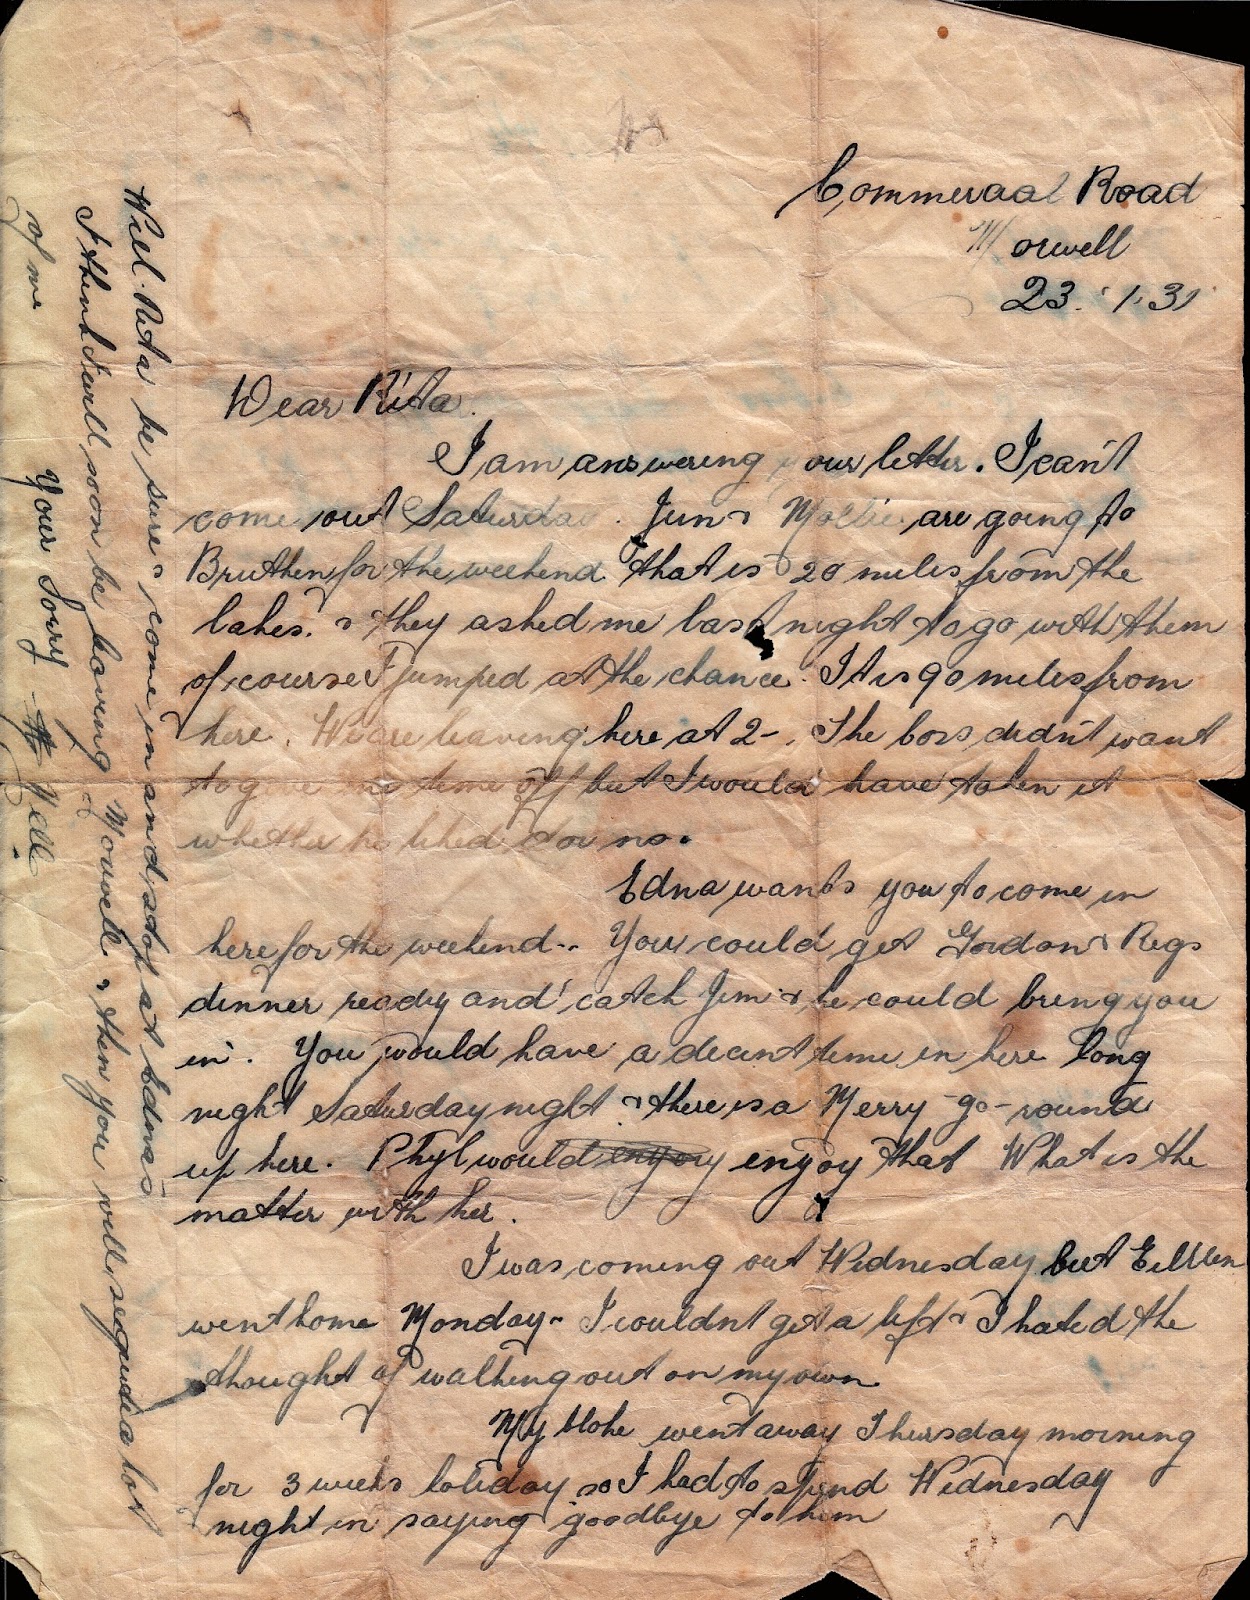 Commercial Road
Morwell
23. 1. 31
Dear Rita.
I am answering your letter. I can't
come out Saturday. Jim & Mollie are going to
Bruthen for the weekend that is 20 miles from the
lakes. & they asked me last night to go with them
of course I jumped at the chance. It is 90 miles from
here. We are leaving here at 2-. The boss didn't want
to give me time off but I would have taken it
whether he liked it or no.
Edna wants you to come in
here for the weekend.. You could get Gordon & Regs
dinner ready and catch Jim & he could bring you
in. You would have a decent time in here long
night Saturday night & there is a Merry-go-round
up here. Phyl would enjoy enjoy that What is the
matter with her.
I was coming out Wednesday but Eileen
went home Monday- I couldnt get a lift & I hated the
thought of walking out on my own
My bloke went away Thursday morning
for 3 weeks holiday so I had to spend Wednesday
night in saying goodbye to him
Well Rita be sure & come in and stop at Edna's
I think I will soon be leaving Morwell & then you will see quite a lot
of me
Your Sorry
Nell.